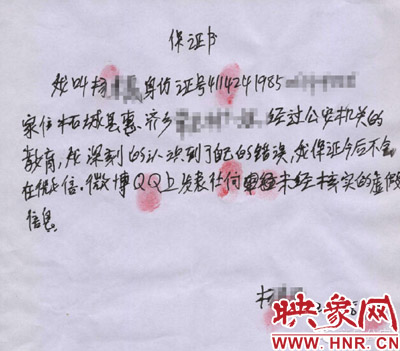 保证书
我叫杨 身份证号4114241985
家住柘城县惠济乡 经过公安机关的
教育，我深刻的认识到了自己的错误，我保证今后不会
在微信.微博QQ上发表任何 未经核实的虚假
信息。
杨
映象网
WWW.HNR.CN